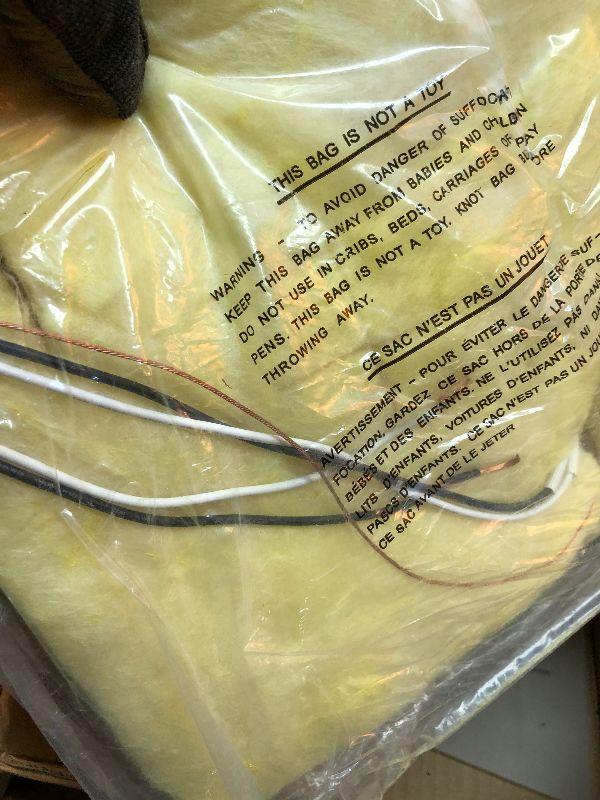 THIS BAG IS NOT A TOY
WARNING - TO AVOID DANGER OF SUFFOCA
KEEP THIS BAG AWAY FROM BABIES AND
DO NOT USE IN CRIBS, BEDS, CARRIAGES OR PAY
PENS. THIS BAG IS NOT A TOY. KNOT BAG
THROWING AWAY.
CE SAC N'EST PAS UN JOUET
AVERTISSEMENT - POUR ÉVITER LE DANGER DE SUF-
FOCATION, GARDEZ CE SAC HORS DE LA PORTÉE DE
BÉBÉS ET DES ENFANTS. NE L'UTILISEZ PAS DANS
LITS D'ENFANTS, VOITURES D'ENFANTS, NI
PARCS D'ENFANTS. CE SAC N'EST PAS UN
CE SAC AVANT DE LE JETER